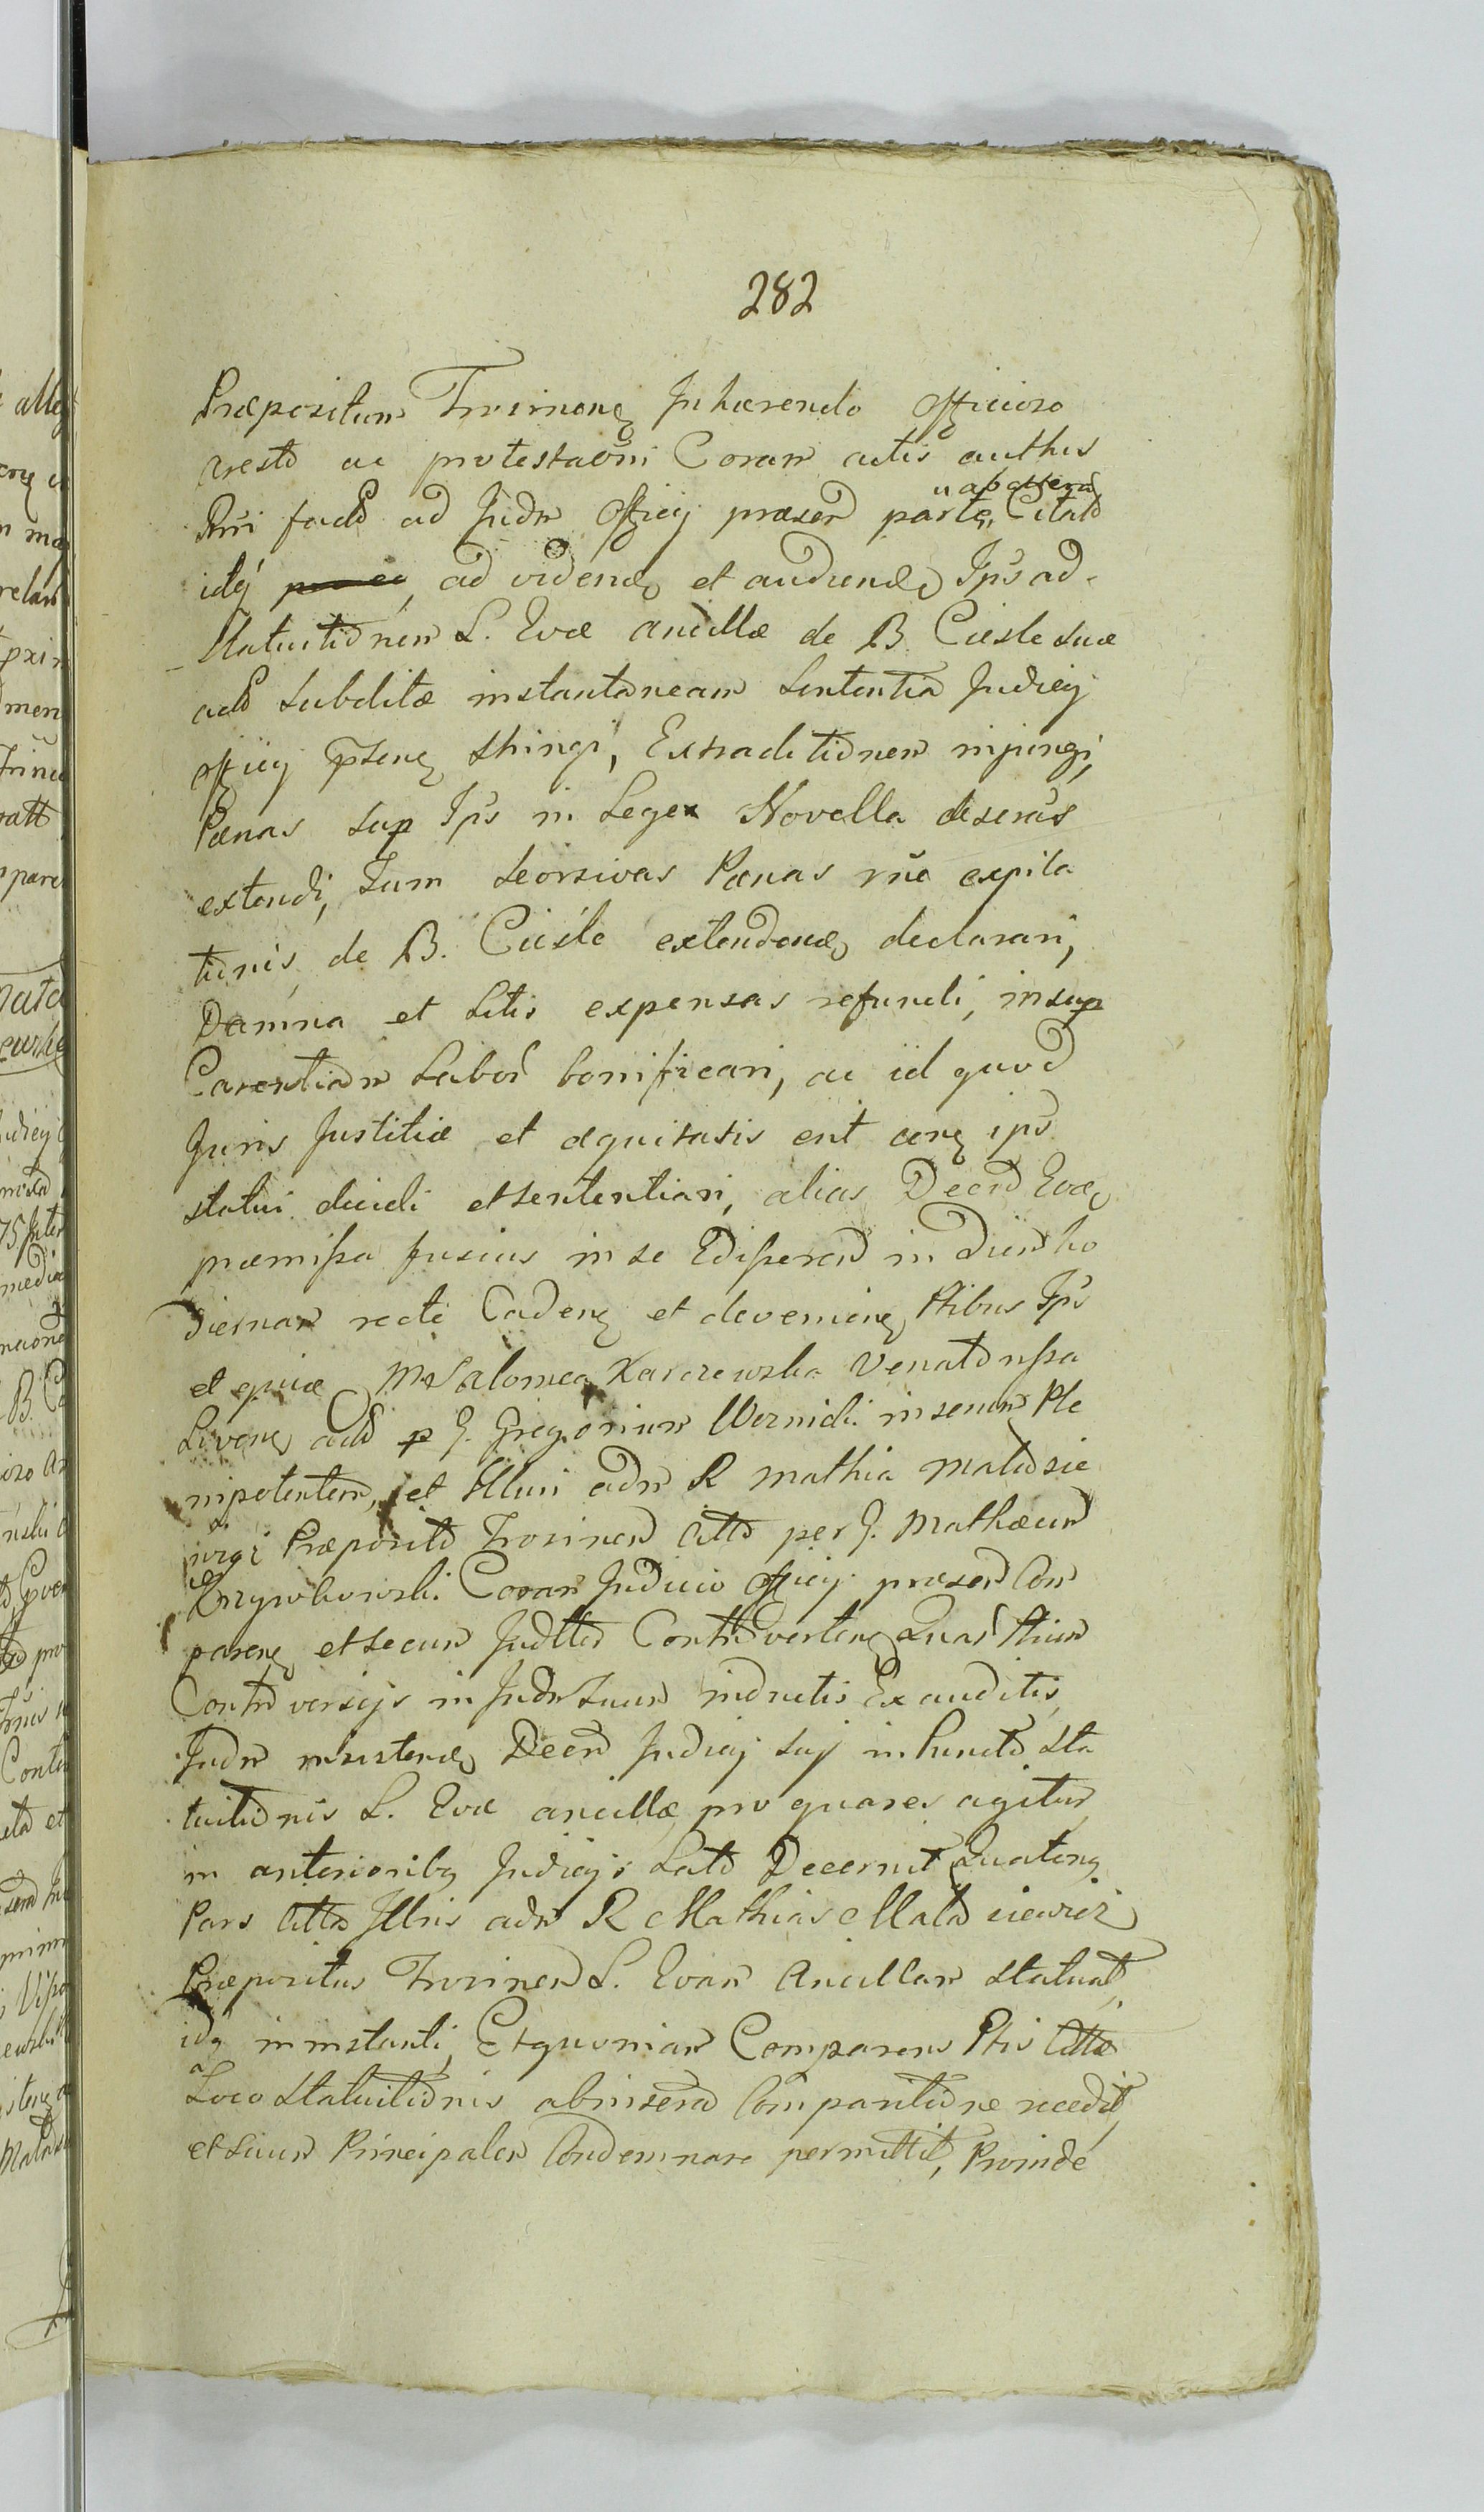 282
Præpositum Trosinen Inhærendo officioso
aresto ac protestaoni Coram actis authis
Rmi facto ad Judm Officij præsen parte Citato
idq ad videnđ et audienđ Ips ad
Statuitionem L. Evæ ancillæ de B. Cieśle suæ
acto subditæ instantaneam Sententia Judicij
officij pŝenq stringi, Extraditionem injungi,
Pænas sup Ips in Legex Novella descras
extendi, Tum seorsivas Pænas rñe expila
tionis, de B. Cieśle extendenđ declarari,
Damna et Litis expensas refundi, insup
Carentiam Labor bonificari, ac id quod
Juris Justitiæ et æquitatis erit cerq ips
statui decidi et sententiari, alias Decro Evæ
præmissa fusius in se Edisseren in Diem ho
diernam recte Caden et devenien Ptibus Ips
et quidæ M Salomea Karczewska Venatorissa
Liven acto p G. Gregorium Wernicki insemu Ple
nipotentem, et Illmi adm R Mathia Matosie
wicz Præposito Trosinen Citto per G. Mathæum
Krzywkowski Coram Judicio Officij præsen Com
paren et secum Judtto Controverten Quar Ptium
Controversijs in Judm suum inductis Exauditis
Judm insisten Decro Judicij suj in Puncto Sta
tuitionis L. Evæ ancillæ, pro qua res agitur
in anterioribq Judicijs Lato Decernit, Quatenq
Pars Citta Illris adm R Mathias Matosiewicz
Præpositus Trosinen L. Evam Ancillam Statuat,
idq in instanti, Et quoniam Comparens Ptis Cittæ
Loco Statuitionis ab insera Comparitione recedit,
et suum Principalem Condemnare permittit, Proinde